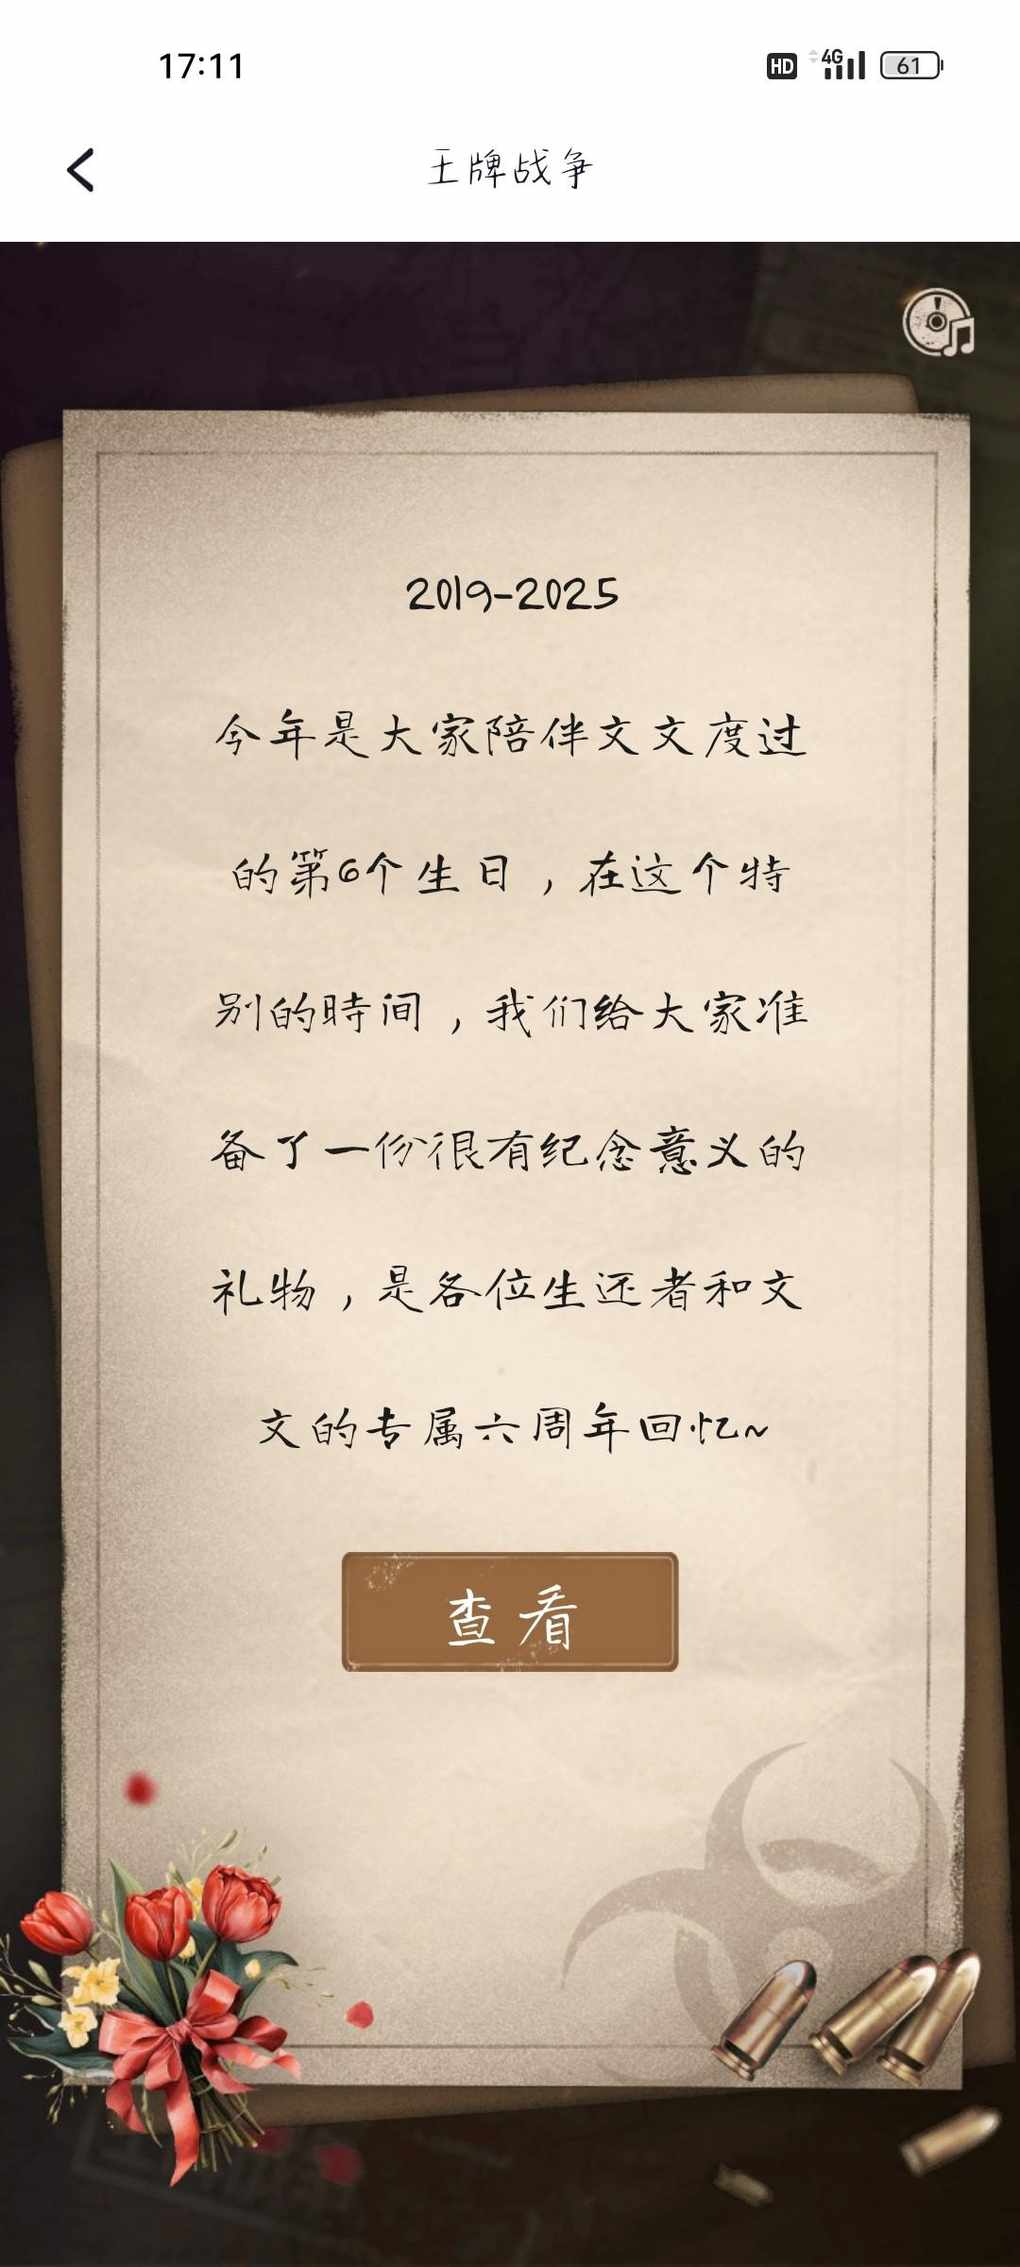 17:11
HD 4G 61
王牌战争
2019-2025
今年是大家陪伴文文度过
的第6个生日，在这个特
别的時间，我们给大家准
备了一份很有纪念意义的
礼物，是各位生还者和文
文的专属六周年回忆~
查看